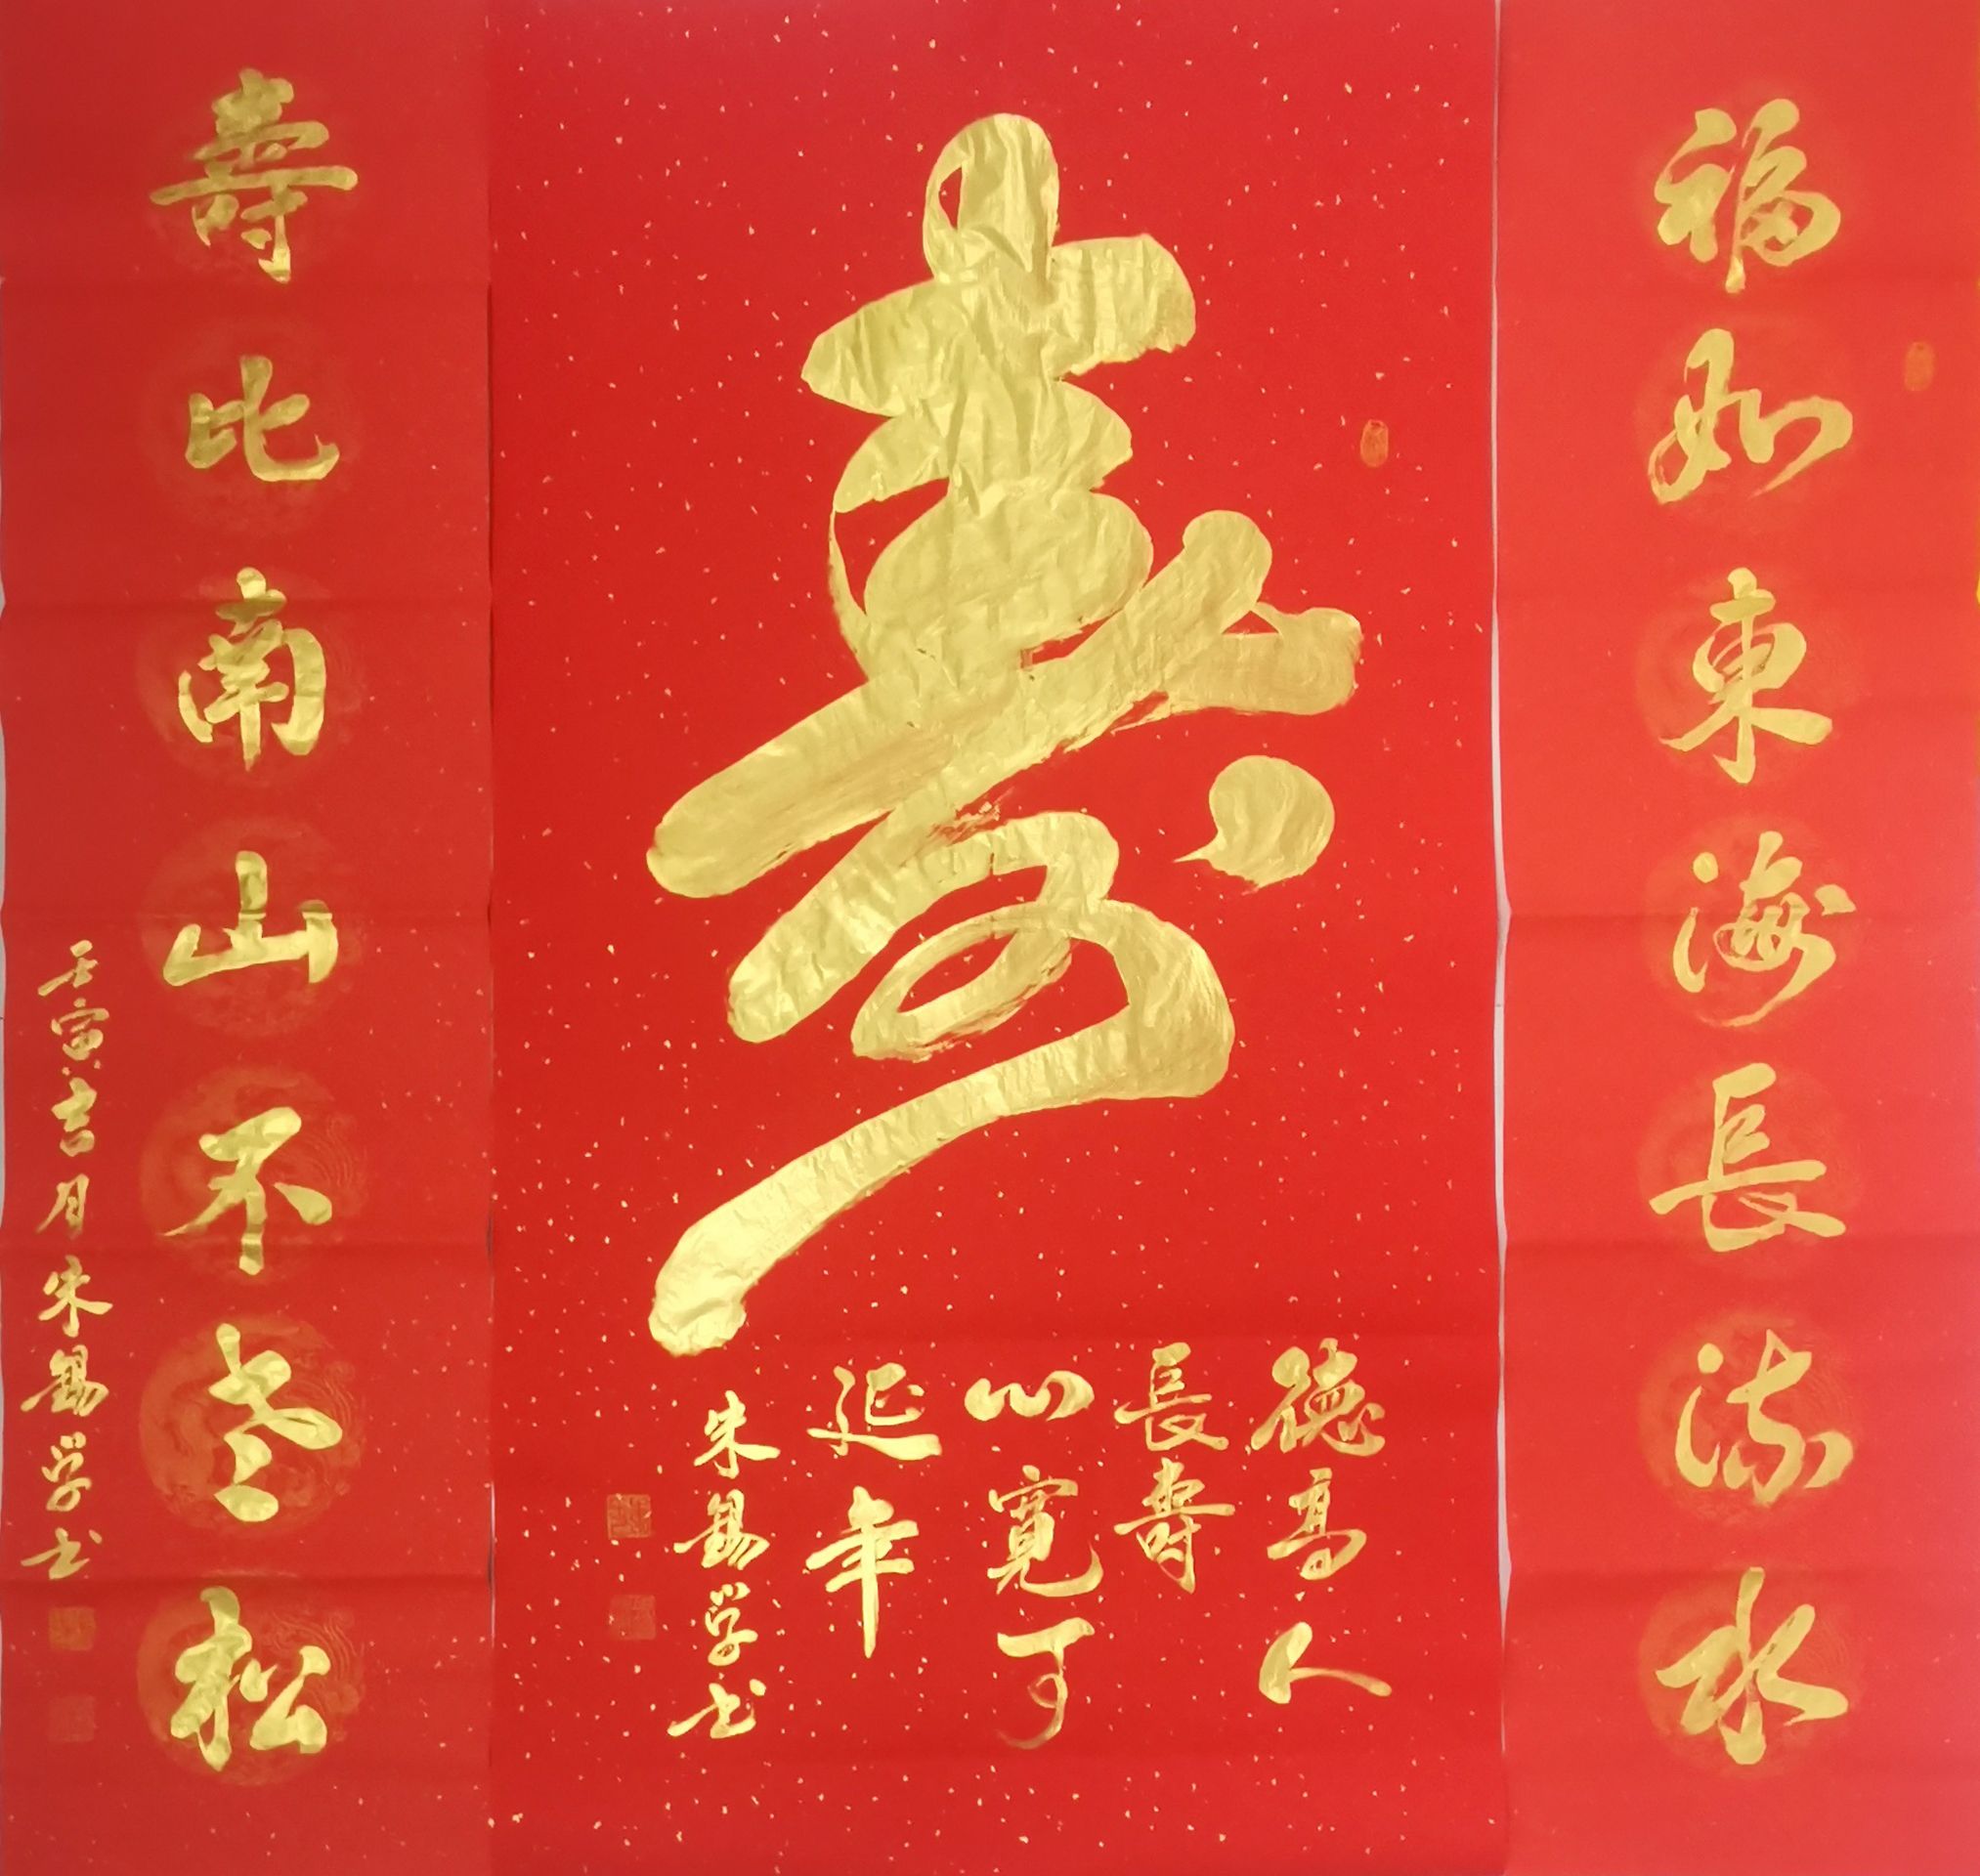 福如東海長流水
壽
德高人
長壽
心寬可
延年
朱錫学书
壽比南山不老松
壬寅吉月朱錫学书